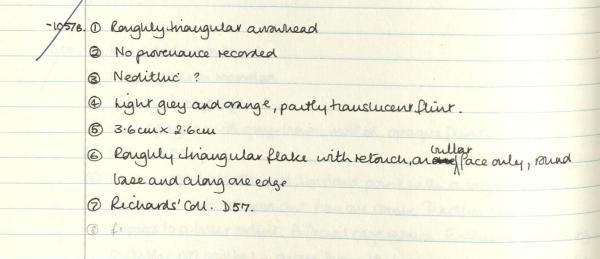 -1057B. ① Roughly triangular arrowhead
② No provenance recorded
③ Neolithic ?
④ Light grey and orange, partly translucent flint.
⑤ 3.6cm x 2.6cm
bulbar
⑥ Roughly triangular flake with retouch, on face only, round
base and along one edge
⑦ Richards' Coll. D57.
⑧